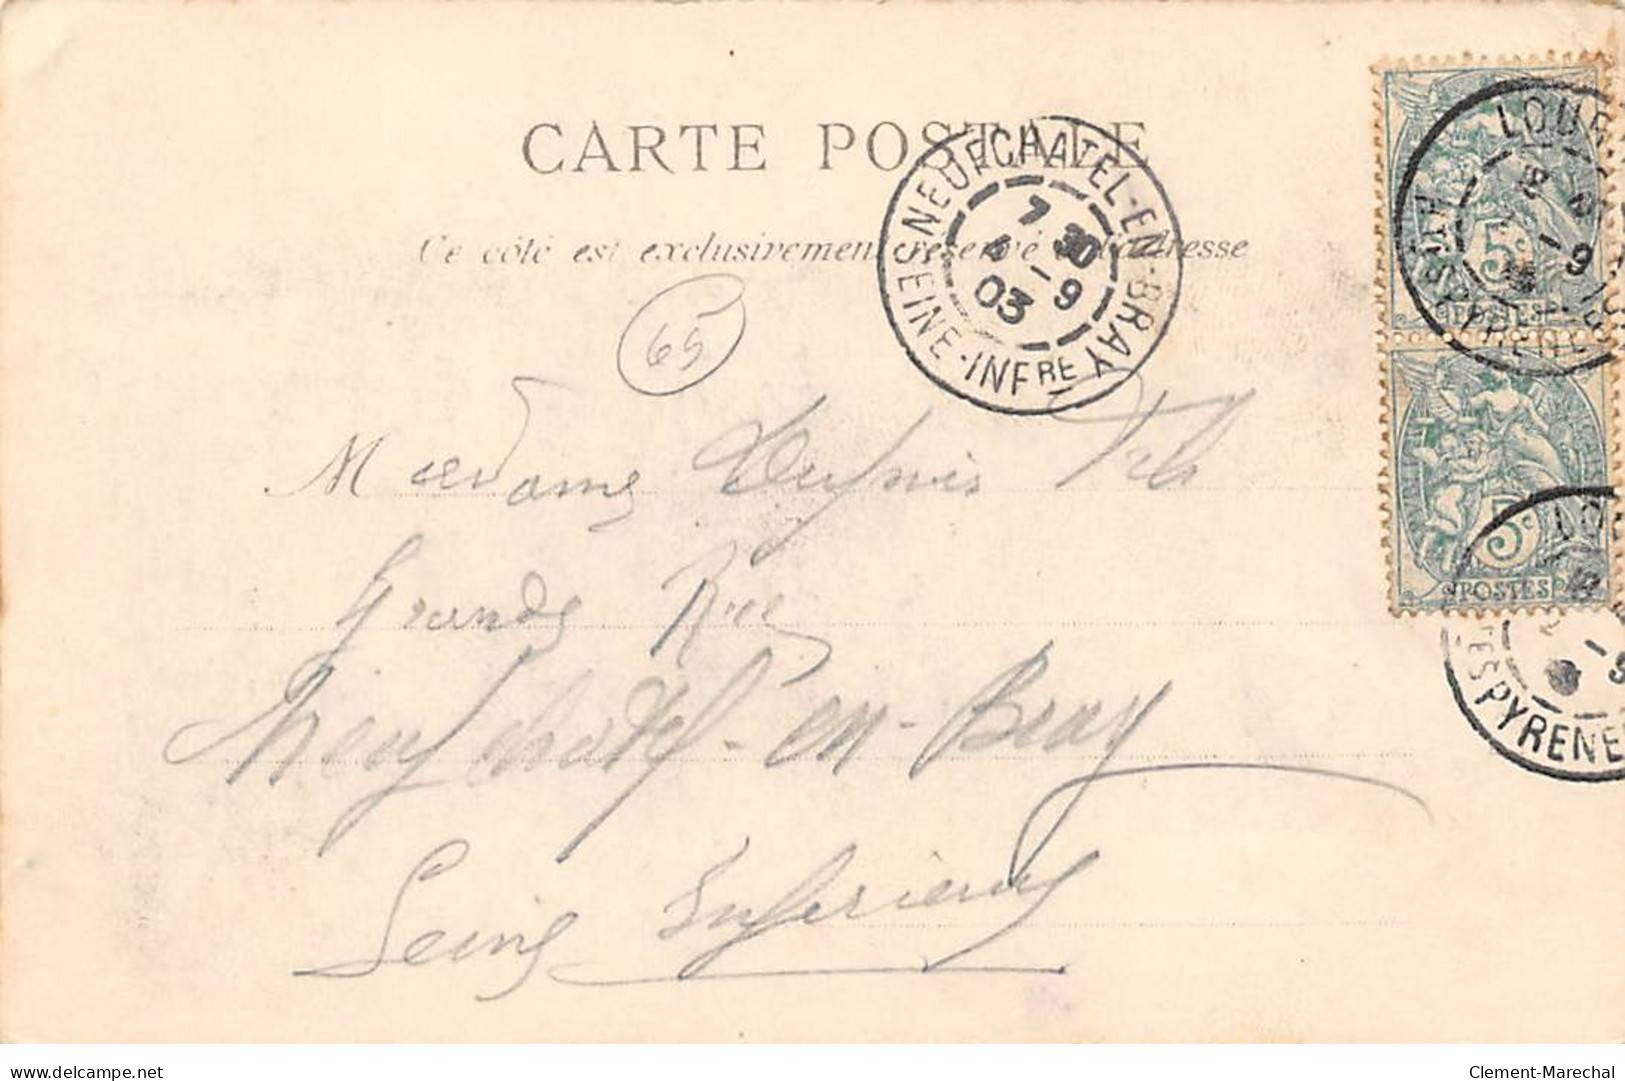 CARTE POSTALE
Ce côté est exclusivement réservé à l'adresse
NEUFCHATEL-EN-BRAY
7 30
4 -9
03
SEINE-INFRE
5c
POSTES
5c
POSTES
LOU
PYRENE
65
Madame Dupuis
Grande Rue
Neufchatel-en-Bray
Seine Inférieure
delcampe.net
Clement-Marechal